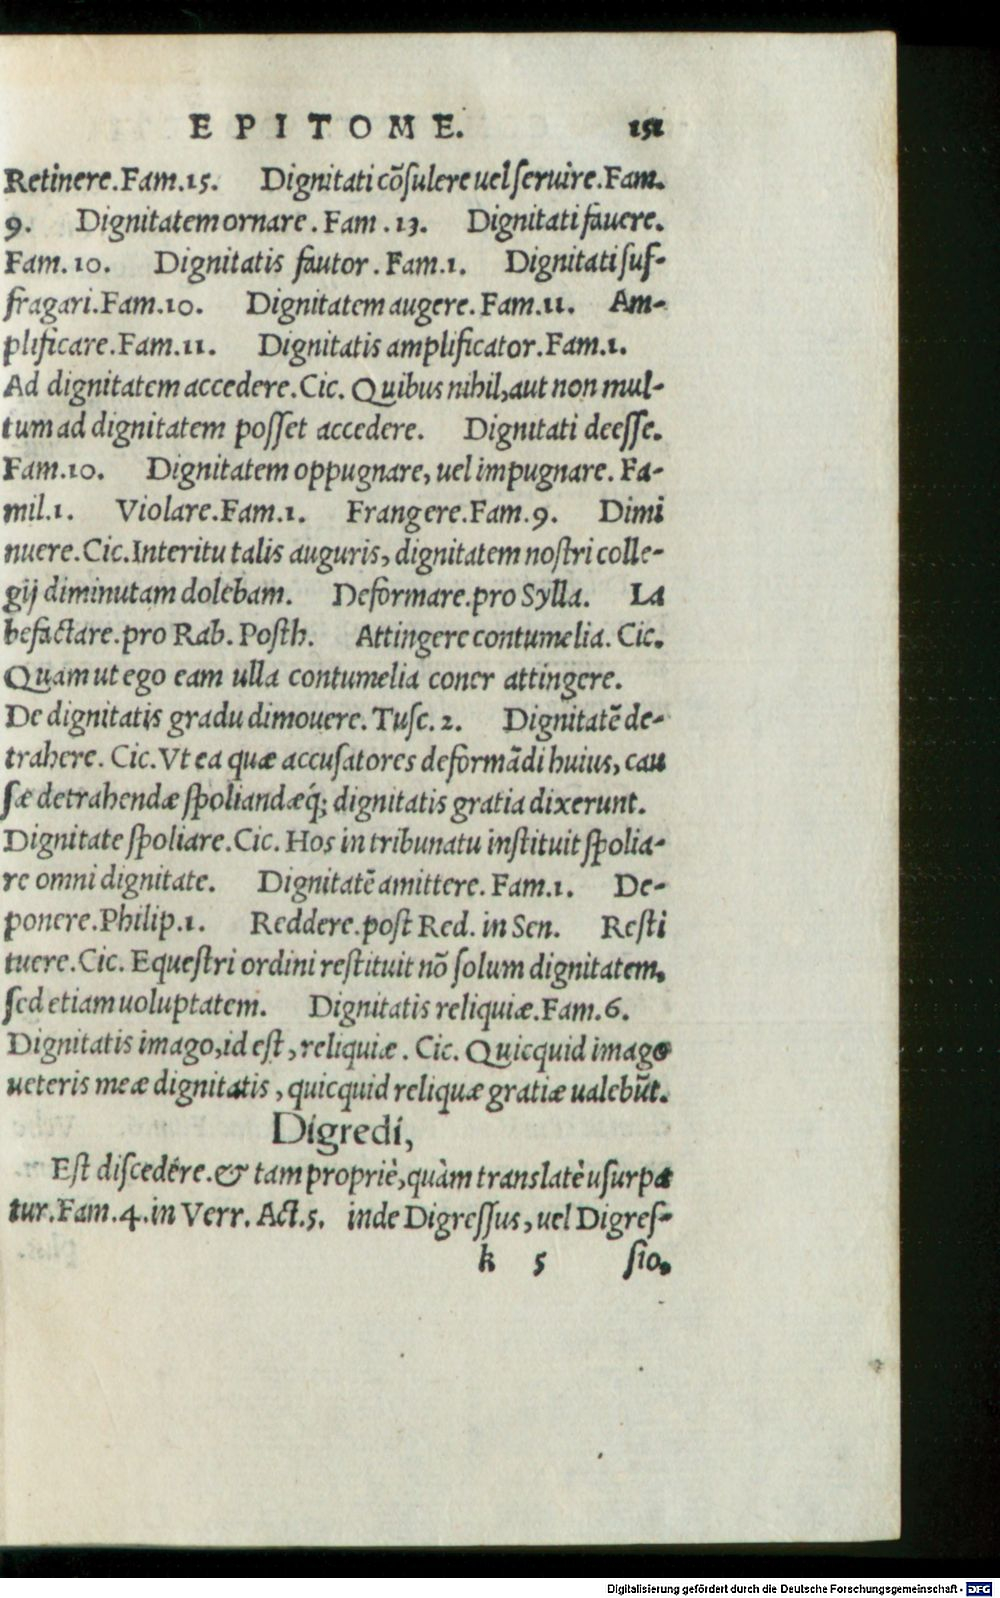 EPITOME. 151
Retinere.Fam.15. Dignitati cõſulere uel ſeruire.Fam.
9. Dignitatem ornare. Fam.13. Dignitati fauere.
Fam.10. Dignitatis fautor. Fam.1. Dignitati ſuf-
fragari.Fam.10. Dignitatem augere. Fam.11. Am-
plificare.Fam.11. Dignitatis amplificator.Fam.1.
Ad dignitatem accedere.Cic. Quibus nihil,aut non mul-
tum ad dignitatem poſſet accedere. Dignitati deeſſe.
Fam.10. Dignitatem oppugnare, uel impugnare. Fa-
mil.1. Violare.Fam.1. Frangere.Fam.9. Dimi
nuere.Cic.Interitu talis auguris, dignitatem noſtri colle-
gij diminutam dolebam. Deformare.pro Sylla. La
befactare.pro Rab. Poſth. Attingere contumelia. Cic.
Quam ut ego eam ulla contumelia coner attingere.
De dignitatis gradu dimouere. Tuſc.2. Dignitatẽ de-
trahere. Cic.Vt ea quæ accuſatores deformãdi huius, cau
ſæ detrahendæ ſpoliandæq́; dignitatis gratia dixerunt.
Dignitate ſpoliare.Cic. Hos in tribunatu inſtituit ſpolia-
re omni dignitate. Dignitatẽ amittere. Fam.1. De-
ponere.Philip.1. Reddere.poſt Red. in Sen. Reſti
tuere.Cic. Equeſtri ordini reſtituit nõ ſolum dignitatem,
ſed etiam uoluptatem. Dignitatis reliquiæ.Fam.6.
Dignitatis imago,id eſt, reliquiæ. Cic. Quicquid imago
ueteris meæ dignitatis, quicquid reliquæ gratiæ ualebũt.
Digredi,
Eſt diſcedére.& tam propriè,quàm translatè uſurpa
tur.Fam.4.in Verr. Act.5. inde Digreſſus, uel Digreſ-
k 5 ſio.
Digitalisierung gefördert durch die Deutsche Forschungsgemeinschaft - DFG